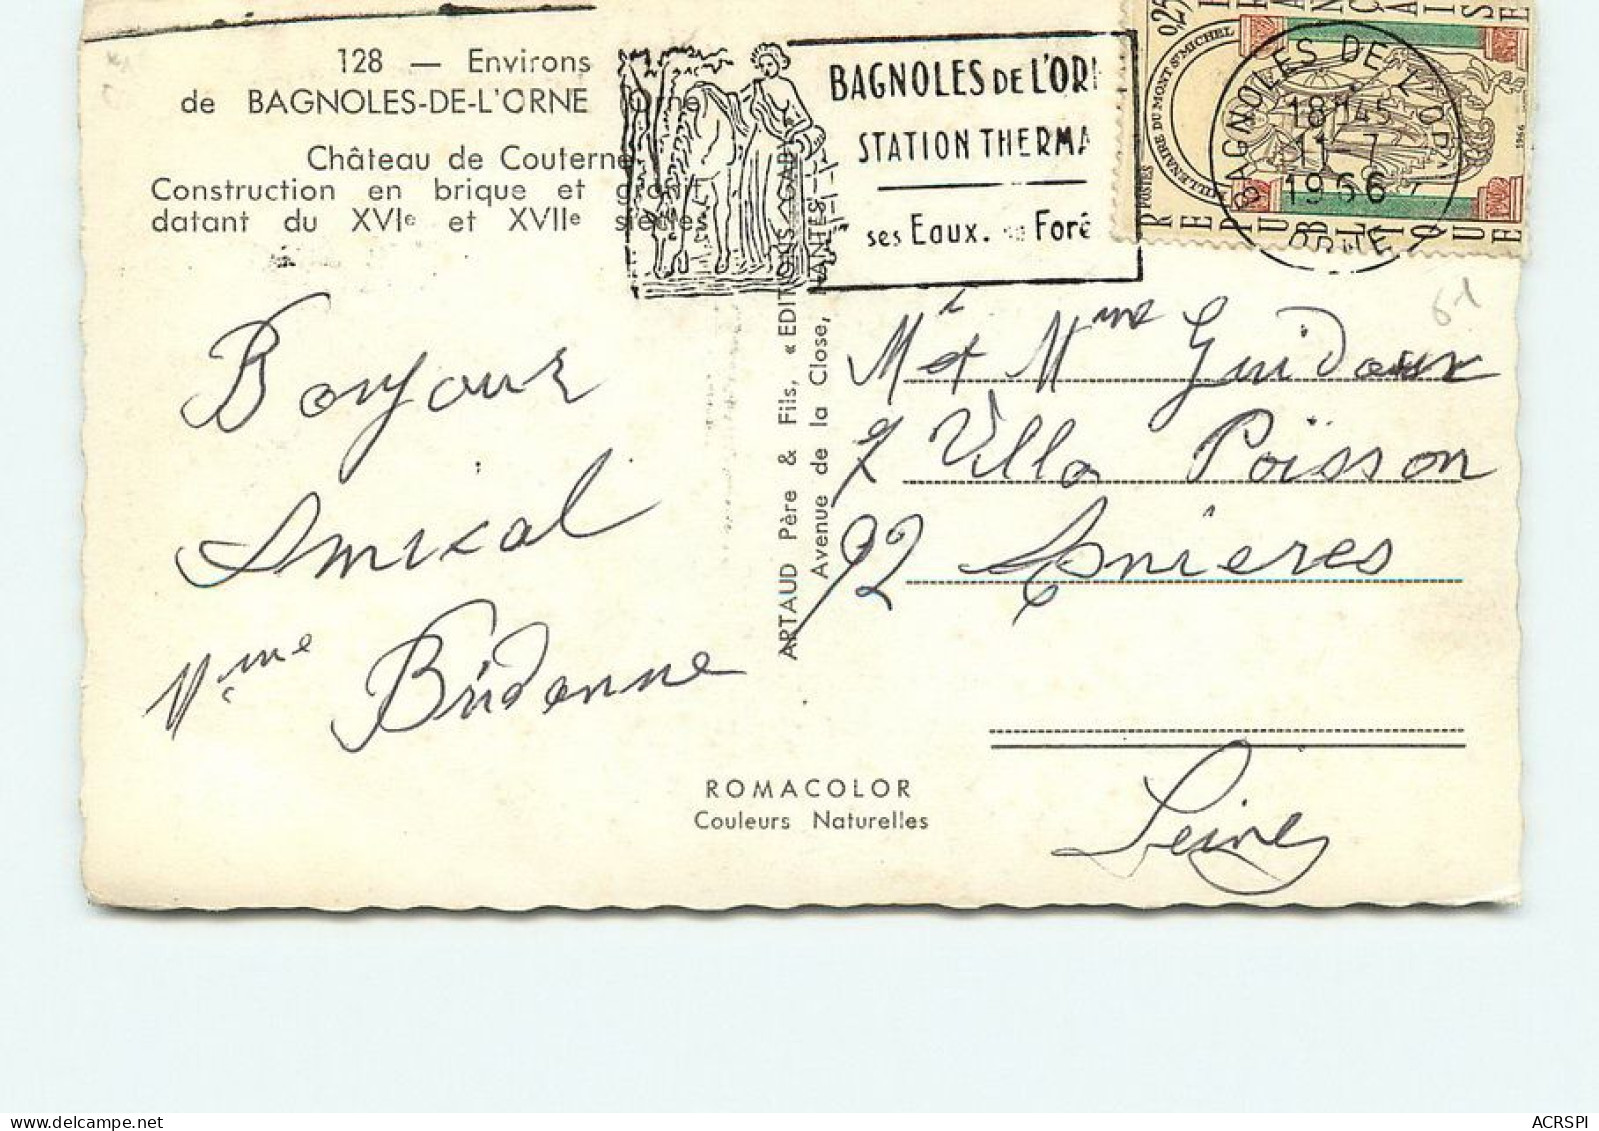 128 — Environs
de BAGNOLES-DE-L'ORNE (Orne)
Château de Couterne
Construction en brique et granit
datant du XVIe et XVIIe siècles
BAGNOLES DE L'OR
STATION THERMA
ses Eaux. sa Forê
0,25
RÉPUBLIQUE
FRANÇAISE
POSTES
MILLÉNAIRE DU MONT ST MICHEL
1966
BAGNOLES DE L'ORNE
18H45
11-7
1966
ORNE
61
Bonjour
Amical
Mme
ARTAUD Père & Fils, « EDITIONS GABY »
Avenue de la Close, NANTES
Mr et Mme
7 Villa Poïsson
92 Asnieres
Seine
ROMACOLOR
Couleurs Naturelles
ACRSPI